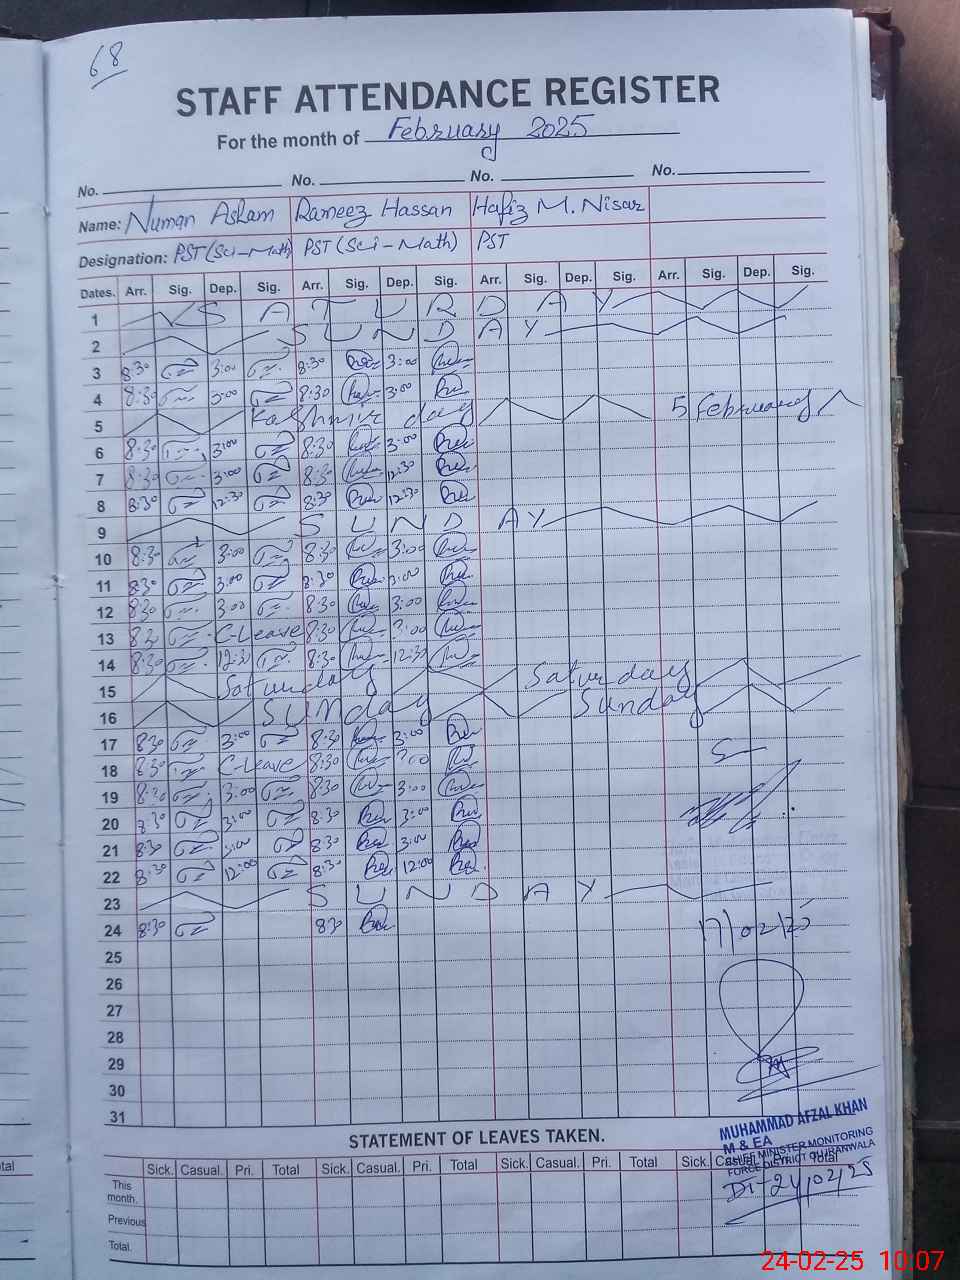 68
STAFF ATTENDANCE REGISTER
For the month of February 2025
No. No. No. No.
Name: Numan Aslam Rameez Hassan Hafiz M. Nisar
Designation: PST (Sci-Math) PST (Sci-Math) PST
Dates. Arr. Sig. Dep. Sig. Arr. Sig. Dep. Sig. Arr. Sig. Dep. Sig. Arr. Sig. Dep. Sig.
1 SATURDAY
2 SUNDAY
3 8:30 3:00 8:30 3:00
4 8:30 3:00 8:30 3:00
5 Kashmir day 5 February
6 8:30 3:00 8:30 3:00
7 8:30 3:00 8:30 12:30
8 8:30 12:30 8:30 12:30
9 SUNDAY
10 8:30 3:00 8:30 3:00
11 830 3:00 8:30 3:00
12 8:30 3:00 8:30 3:00
13 8:30 C-Leave 8:30 3:00
14 8:30 12:30 8:30 12:30
15 Saturday Saturday
16 SUNday Sunday
17 830 3:00 8:30 3:00
18 8:30 C-Leave 8:30 3:00
19 8:30 3:00 8:30 3:00
20 8:30 3:00 8:30 3:00
21 8:30 3:00 8:30 3:00
22 8:30 12:00 8:30 12:00
23 SUNDAY
24 8:30 830 17/02/25
25
26
27
28
29
30
31
MUHAMMAD AFZAL KHAN
M & EA
CHIEF MINISTER MONITORING
FORCE DISTRICT GUJRANWALA
Dt-24/02/25
STATEMENT OF LEAVES TAKEN.
Sick. Casual. Pri. Total Sick. Casual. Pri. Total Sick. Casual. Pri. Total Sick. Casual. Pri. Total
This month.
Previous
Total.
24-02-25 10:07